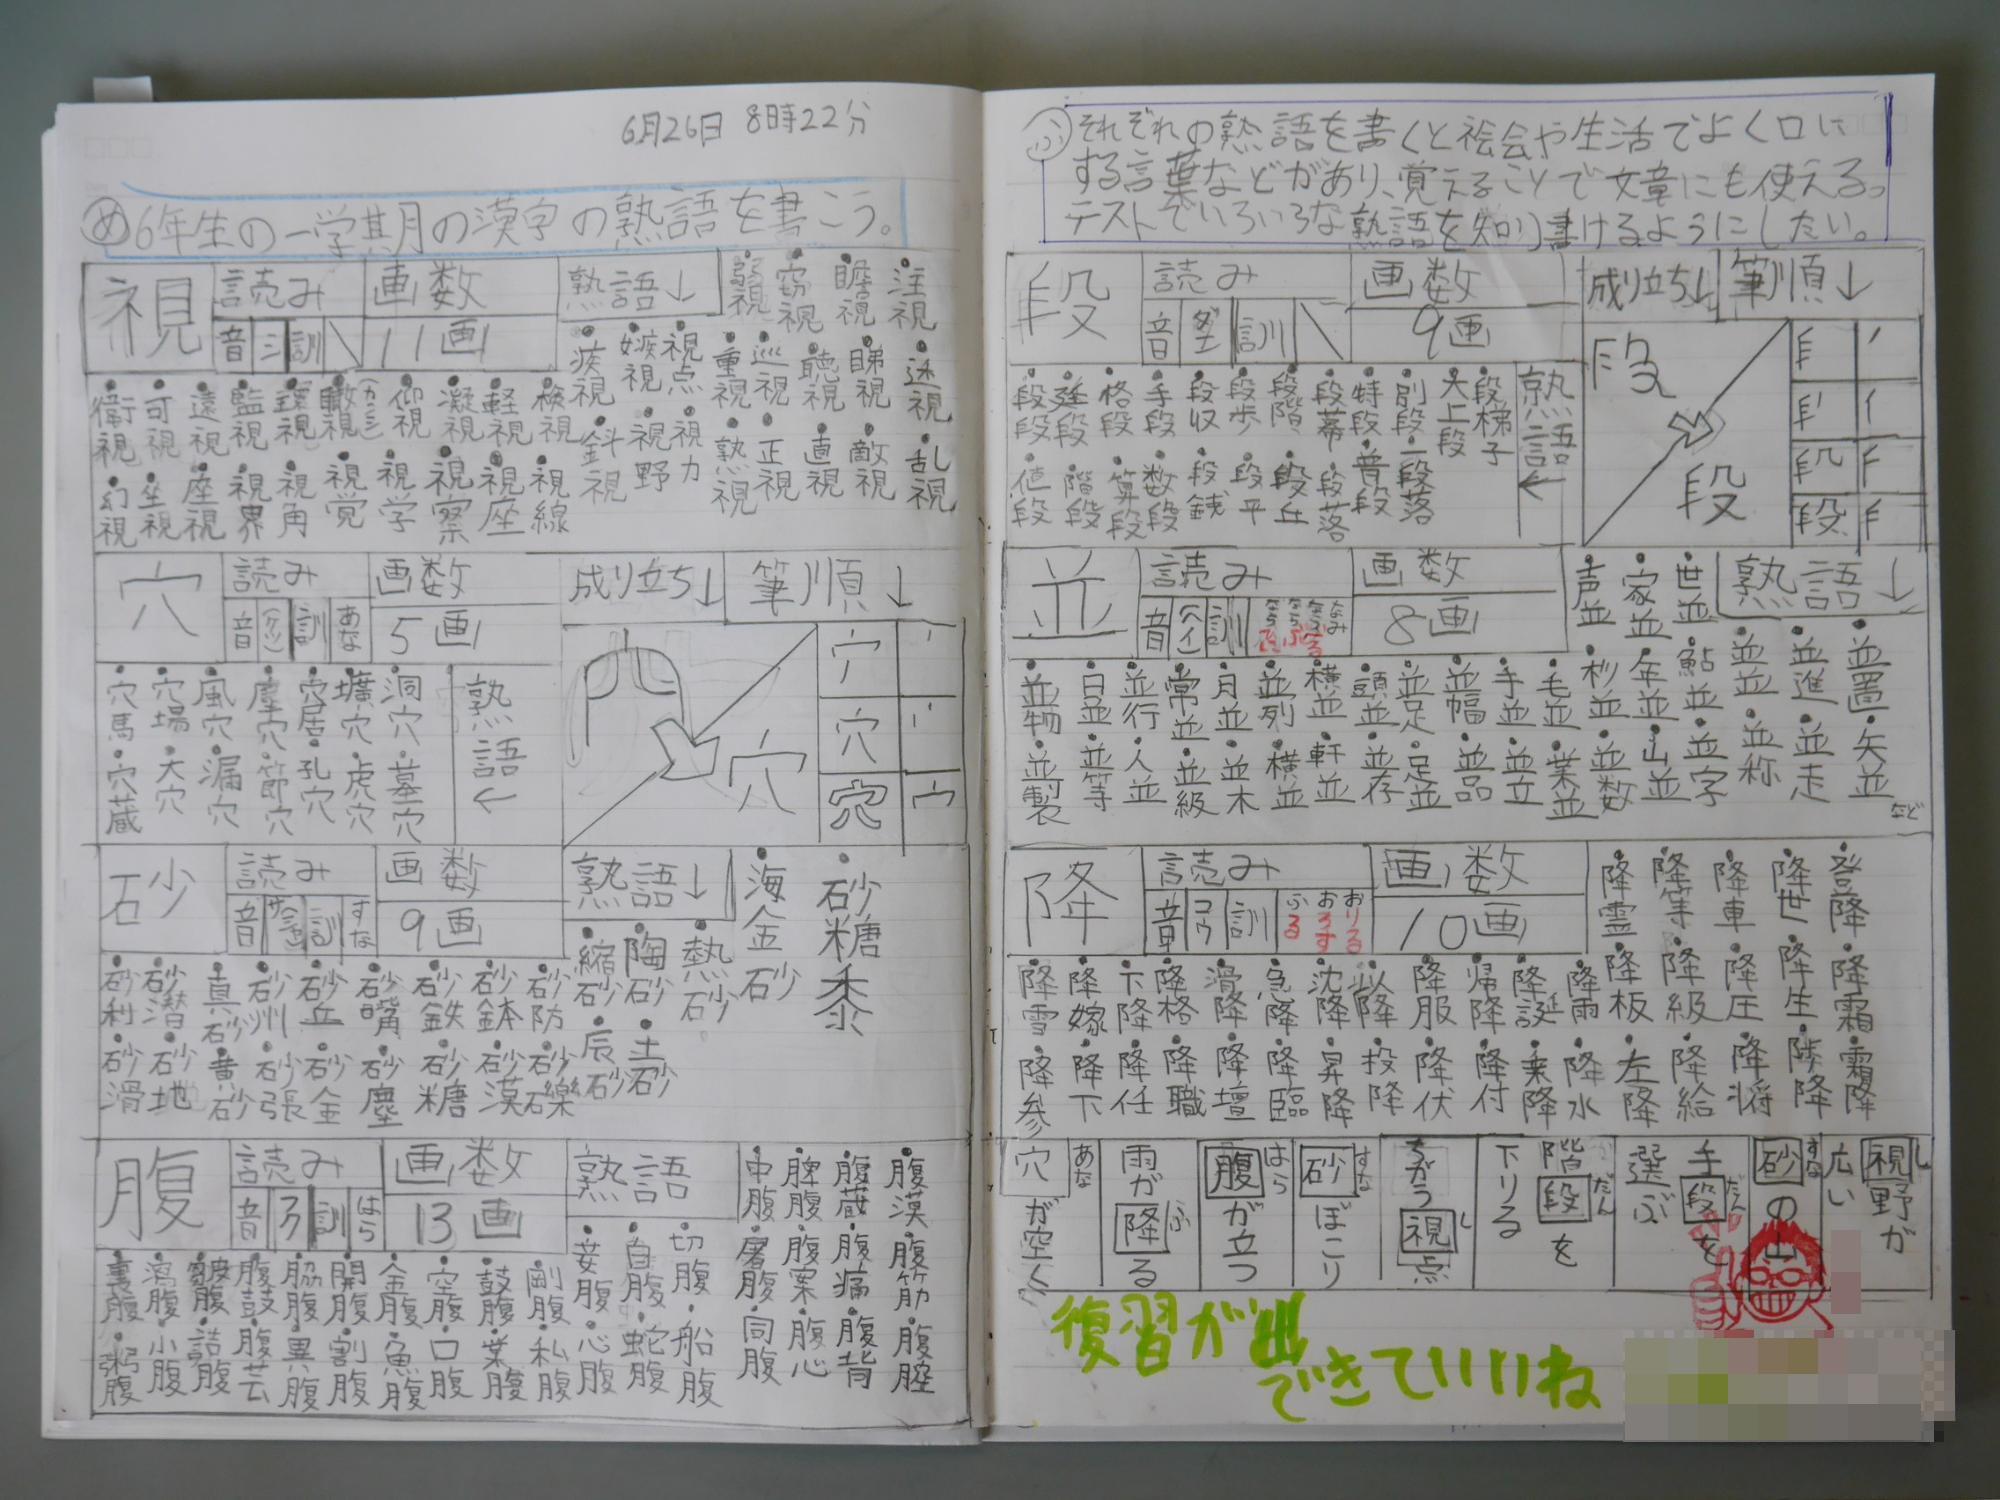 6月26日 8時22分
め 6年生の一学期の漢字の熟語を書こう。
視 読み 画数 熟語↓
音 シ 訓 11画
弱視 窃視 瞻視 注視
疾視 嫉視 視点 重視 巡視 聴視 睇視 透視
斜視 視野 視力 熟視 正視 直視 敵視 乱視
衛視 可視 遠視 監視 環視 瞰視 仰視 凝視 軽視 検視
幻視 坐視 座視 視界 視角 視覚 視学 視察 視座 視線
穴 読み 画数 成り立ち↓ 筆順↓
音 (ケツ) 訓 あな 5画
穴
熟語←
穴馬 穴場 風穴 塵穴 穴居 壙穴 洞穴
穴蔵 大穴 漏穴 節穴 孔穴 虎穴 墓穴
砂 読み 画数 熟語↓
音 訓 すな 9画
海金砂 砂糖黍
縮砂 陶砂 熱砂
辰砂 土砂
砂利 砂潜 真砂 砂州 砂丘 砂嘴 砂鉄 砂鉢 砂防
砂滑 砂地 黄砂 砂張 砂金 砂塵 砂糖 砂漠 砂礫
腹 読み 画数 熟語
音 フク 訓 はら 13画
中腹 脾腹 腹蔵 腹漢
妾腹 自腹 切腹 屠腹 腹案 腹痛 腹筋
心腹 蛇腹 船腹 同腹 腹心 腹背 腹腔
裏腹 瀉腹 皺腹 腹鼓 脇腹 開腹 金腹 空腹 鼓腹 剛腹
粥腹 小腹 詰腹 腹芸 異腹 割腹 魚腹 口腹 業腹 私腹
ふ それぞれの熟語を書くと絵会や生活でよく口に
する言葉などがあり、覚えることで文章にも使える。
テストでいろいろな熟語を知り書けるようにしたい。
段 読み 画数 成り立ち↓ 筆順↓
音 訓 9画
段
熟語←
段段 逆段 格段 手段 段収 段歩 段階 段幕 特段 別段 大上段 段梯子
値段 階段 算段 数段 段銭 段平 段丘 段落 普段 一段落
並 読み 画数 熟語↓
音 (ヘイ) 訓 なみ ならべる ならぶ ならびに 8画
声並 家並 世並
杪並 年並 鮎並 並並 並進 並置
並数 山並 並字 並称 並走 矢並 など
並物 日並 並行 常並 月並 並列 横並 頭並 並足 並幅 手並 毛並
並製 並等 人並 並級 並木 横並 軒並 並存 足並 並品 並立 業並
降 読み 画数
音 コウ 訓 おりる おろす ふる 10画
降霊 降等 降車 降世 登降
降板 降級 降圧 降生 降霜
左降 降給 降将 陟降 霜降
降雪 降嫁 下降 降格 滑降 急降 沈降 以降 降服 帰降 降誕 降雨
降参 降下 降任 降職 降壇 降臨 昇降 投降 降伏 降付 乗降 降水
視野が広い
砂の山
手段を選ぶ
階段を下りる
ちがう視点
砂ぼこり
腹が立つ
雨が降る
穴が空く
復習が出
できていいね